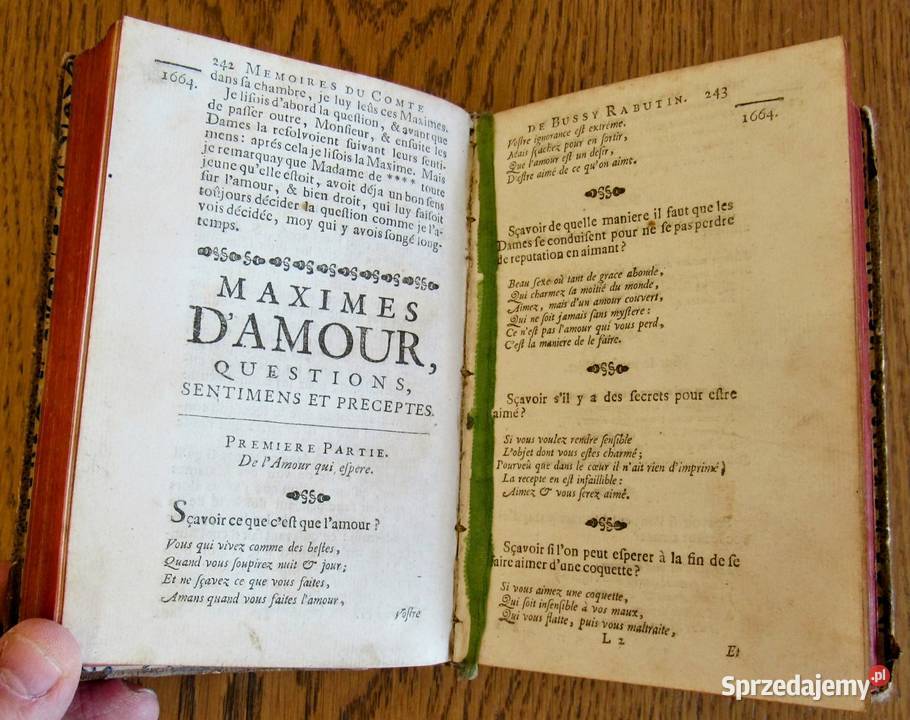 242 MEMOIRES DU COMTE
1664.
dans ſa chambre, je luy leûs ces Maximes.
Je liſois d'abord la queſtion, & avant que
de paſſer outre, Monſieur, & enſuite les
Dames la reſolvoient ſuivant leurs ſenti-
mens: aprés cela je liſois la Maxime. Mais
je remarquay que Madame de **** toute
jeune qu'elle eſtoit, avoit déja un bon ſens
ſur l'amour, & bien droit, qui luy faiſoit
toûjours décider la queſtion comme je l'a-
vois décidée, moy qui y avois ſongé long-
temps.
MAXIMES
D'AMOUR,
QUESTIONS,
SENTIMENS ET PRECEPTES.
PREMIERE PARTIE.
De l'Amour qui eſpere.
Sçavoir ce que c'eſt que l'amour ?
Vous qui vivez comme des beſtes,
Quand vous ſoupirez nuit & jour;
Et ne ſçavez ce que vous faites,
Amans quand vous faites l'amour,
Voſtre
DE BUSSY RABUTIN. 243
1664.
Voſtre ignorance eſt extrême.
Mais ſçachez pour en ſortir,
Que l'amour eſt un deſir,
D'eſtre aimé de ce qu'on aime.
Sçavoir de quelle maniere il faut que les
Dames ſe conduiſent pour ne ſe pas perdre
de reputation en aimant ?
Beau ſexe où tant de grace abonde,
Qui charmez la moitié du monde,
Aimez, mais d'un amour couvert,
Qui ne ſoit jamais ſans myſtere:
Ce n'eſt pas l'amour qui vous perd,
C'eſt la maniere de le faire.
Sçavoir s'il y a des ſecrets pour eſtre
aimé ?
Si vous voulez rendre ſenſible
L'objet dont vous eſtes charmé;
Pourveû que dans le cœur il n'ait rien d'imprimé,
La recepte en eſt infaillible:
Aimez & vous ſerez aimé.
Sçavoir ſi l'on peut eſperer à la fin de ſe
faire aimer d'une coquette ?
Si vous aimez une coquette,
Qui ſoit inſenſible à vos maux,
Qui vous flatte, puis vous maltraite,
L 2
Et
Sprzedajemy.pl